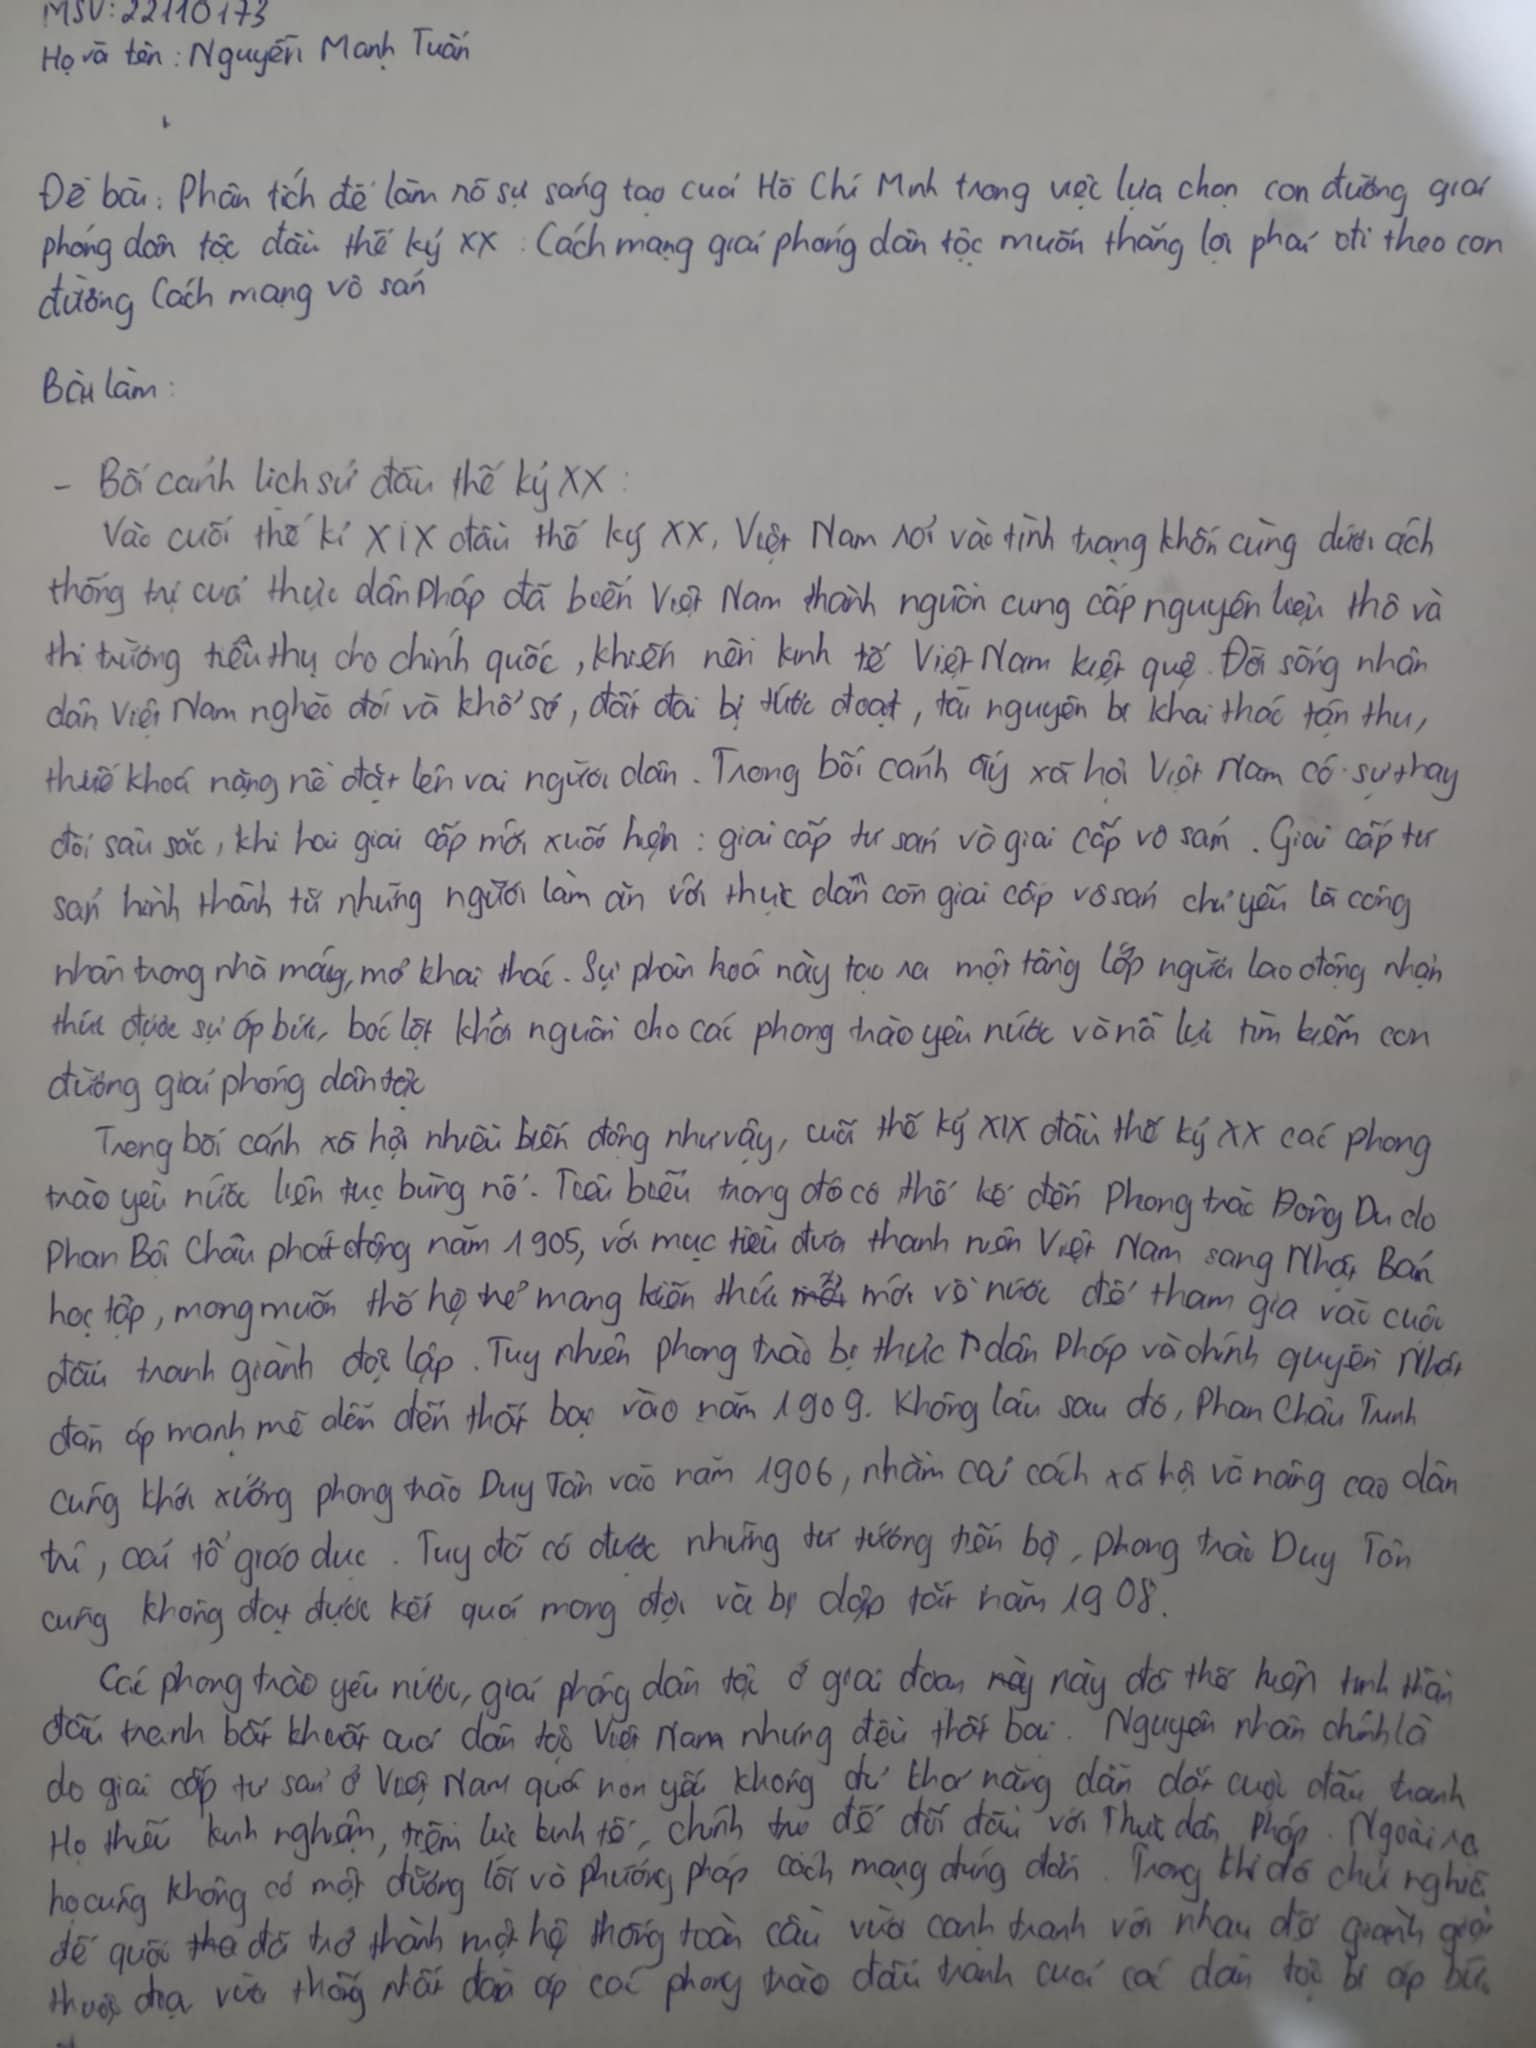 MSV: 22110173
Họ và tên: Nguyễn Mạnh Tuấn
Đề bài: Phân tích để làm rõ sự sáng tạo của Hồ Chí Minh trong việc lựa chọn con đường giải
phóng dân tộc đầu thế kỷ XX: Cách mạng giải phóng dân tộc muốn thắng lợi phải đi theo con
đường Cách mạng vô sản
Bài làm:
- Bối cảnh lịch sử đầu thế kỷ XX:
Vào cuối thế kỉ XIX đầu thế kỷ XX, Việt Nam rơi vào tình trạng khốn cùng dưới ách
thống trị của thực dân Pháp đã biến Việt Nam thành nguồn cung cấp nguyên liệu thô và
thị trường tiêu thụ cho chính quốc, khiến nền kinh tế Việt Nam kiệt quệ. Đời sống nhân
dân Việt Nam nghèo đói và khổ sở, đất đai bị tước đoạt, tài nguyên bị khai thác tận thu,
thuế khoá nặng nề đặt lên vai người dân. Trong bối cảnh ấy xã hội Việt Nam có sự thay
đổi sâu sắc, khi hai giai cấp mới xuất hiện: giai cấp tư sản và giai cấp vô sản. Giai cấp tư
sản hình thành từ những người làm ăn với thực dân còn giai cấp vô sản chủ yếu là công
nhân trong nhà máy, mỏ khai thác. Sự phân hoá này tạo ra một tầng lớp người lao động nhận
thức được sự áp bức, bóc lột khơi nguồn cho các phong trào yêu nước và nỗ lực tìm kiếm con
đường giải phóng dân tộc
Trong bối cảnh xã hội nhiều biến động như vậy, cuối thế kỷ XIX đầu thế kỷ XX các phong
trào yêu nước liên tục bùng nổ. Tiêu biểu trong đó có thể kể đến Phong trào Đông Du do
Phan Bội Châu phát động năm 1905, với mục tiêu đưa thanh niên Việt Nam sang Nhật Bản
học tập, mong muốn thế hệ trẻ mang kiến thức mới về nước để tham gia vào cuộc
đấu tranh giành độc lập. Tuy nhiên phong trào bị thực dân Pháp và chính quyền Nhật
đàn áp mạnh mẽ dẫn đến thất bại vào năm 1909. Không lâu sau đó, Phan Châu Trinh
cũng khởi xướng phong trào Duy Tân vào năm 1906, nhằm cải cách xã hội và nâng cao dân
trí, cải tổ giáo dục. Tuy đã có được những tư tưởng tiến bộ, phong trào Duy Tân
cũng không đạt được kết quả mong đợi và bị dập tắt năm 1908.
Các phong trào yêu nước, giải phóng dân tộc ở giai đoạn này đã thể hiện tinh thần
đấu tranh bất khuất của dân tộc Việt Nam nhưng đều thất bại. Nguyên nhân chính là
do giai cấp tư sản ở Việt Nam quá non yếu không đủ khả năng dẫn dắt cuộc đấu tranh
Họ thiếu kinh nghiệm, tiềm lực kinh tế, chính trị để đối đầu với Thực dân Pháp. Ngoài ra
họ cũng không có một đường lối và phương pháp cách mạng đúng đắn. Trong khi đó chủ nghĩa
đế quốc đã trở thành một hệ thống toàn cầu vừa cạnh tranh với nhau để giành giật
thuộc địa vừa thống nhất đàn áp các phong trào đấu tranh của các dân tộc bị áp bức